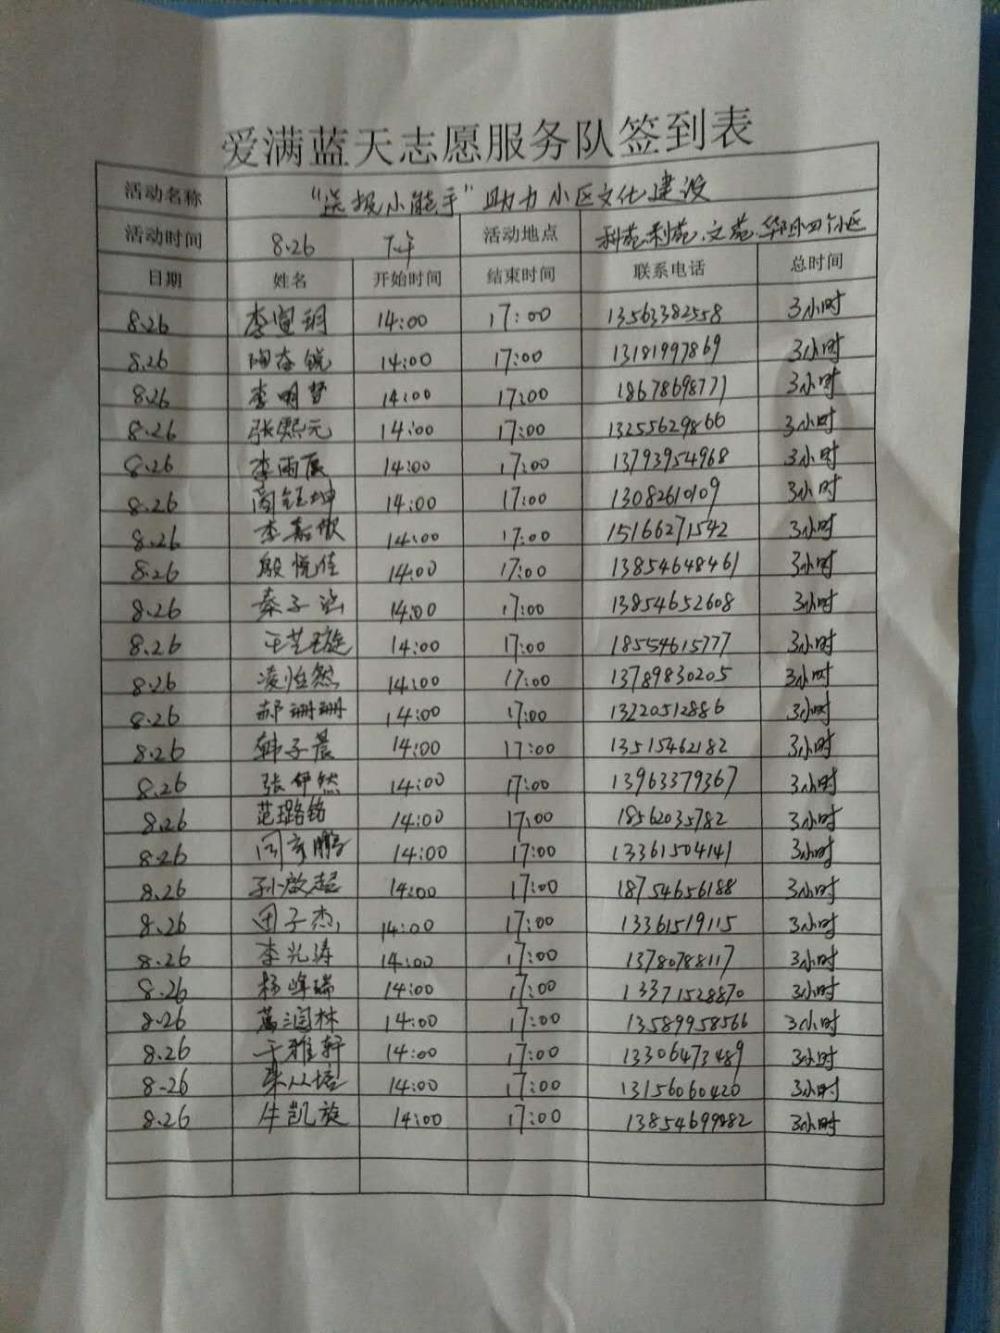 爱满蓝天志愿服务队签到表
活动名称 “送报小能手”助力小区文化建设
活动时间 8.26 下午 活动地点 利苑、文苑、四个小区
日期 姓名 开始时间 结束时间 联系电话 总时间
8.26 李宣玥 14:00 17:00 13563382558 3小时
8.26 陶春锐 14:00 17:00 13181997869 3小时
8.26 李明慧 14:00 17:00 18678698771 3小时
8.26 张熙元 14:00 17:00 13255629866 3小时
8.26 李雨辰 14:00 17:00 13793954968 3小时
8.26 商钰坤 14:00 17:00 13082610109 3小时
8.26 李嘉俶 14:00 17:00 15166271542 3小时
8.26 殷悦佳 14:00 17:00 13854648461 3小时
8.26 秦子涵 14:00 17:00 13854652608 3小时
8.26 王艺璇 14:00 17:00 18554615777 3小时
8.26 凌怡然 14:00 17:00 13789830205 3小时
8.26 郝珊珊 14:00 17:00 13220512886 3小时
8.26 韩子晨 14:00 17:00 13515462182 3小时
8.26 张伊然 14:00 17:00 13963379367 3小时
8.26 范璐铭 14:00 17:00 18562035782 3小时
8.26 闫彦鹏 14:00 17:00 13361504141 3小时
8.26 孙啟超 14:00 17:00 18754656188 3小时
8.26 田子杰 14:00 17:00 13361519115 3小时
8.26 李兴涛 14:00 17:00 13780788117 3小时
8.26 杨峰瑞 14:00 17:00 13371528870 3小时
8.26 葛润林 14:00 17:00 13589958566 3小时
8.26 于雅轩 14:00 17:00 13306473489 3小时
8-26 14:00 17:00 13156060420 3小时
8.26 牛凯旋 14:00 17:00 13854699282 3小时